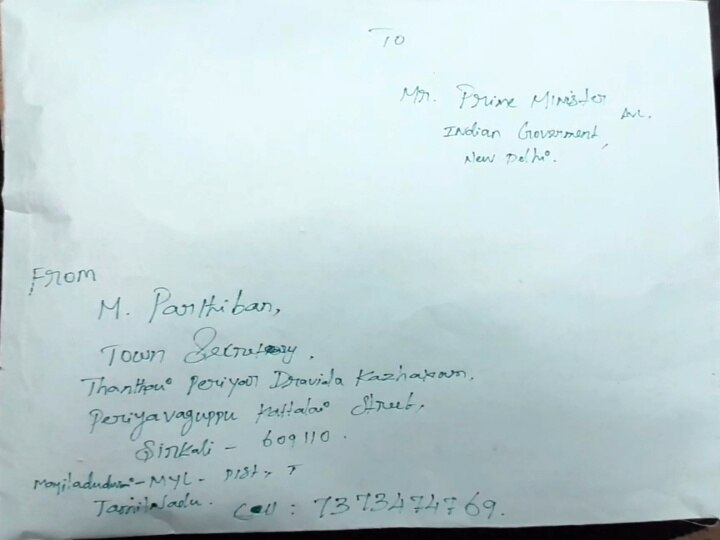 To
Mr. Prime Minister Avl.
Indian Goverment,
New Delhi.
From
M. Parthiban,
Town Secretary,
Thanthai Periyar Dravida Kazhakam.
Periyavaguppu Kattalai Street,
Sirkali - 609110.
Mayiladudurai - MYL - Dist,
Tamil Nadu.
Cell : 7373474769.